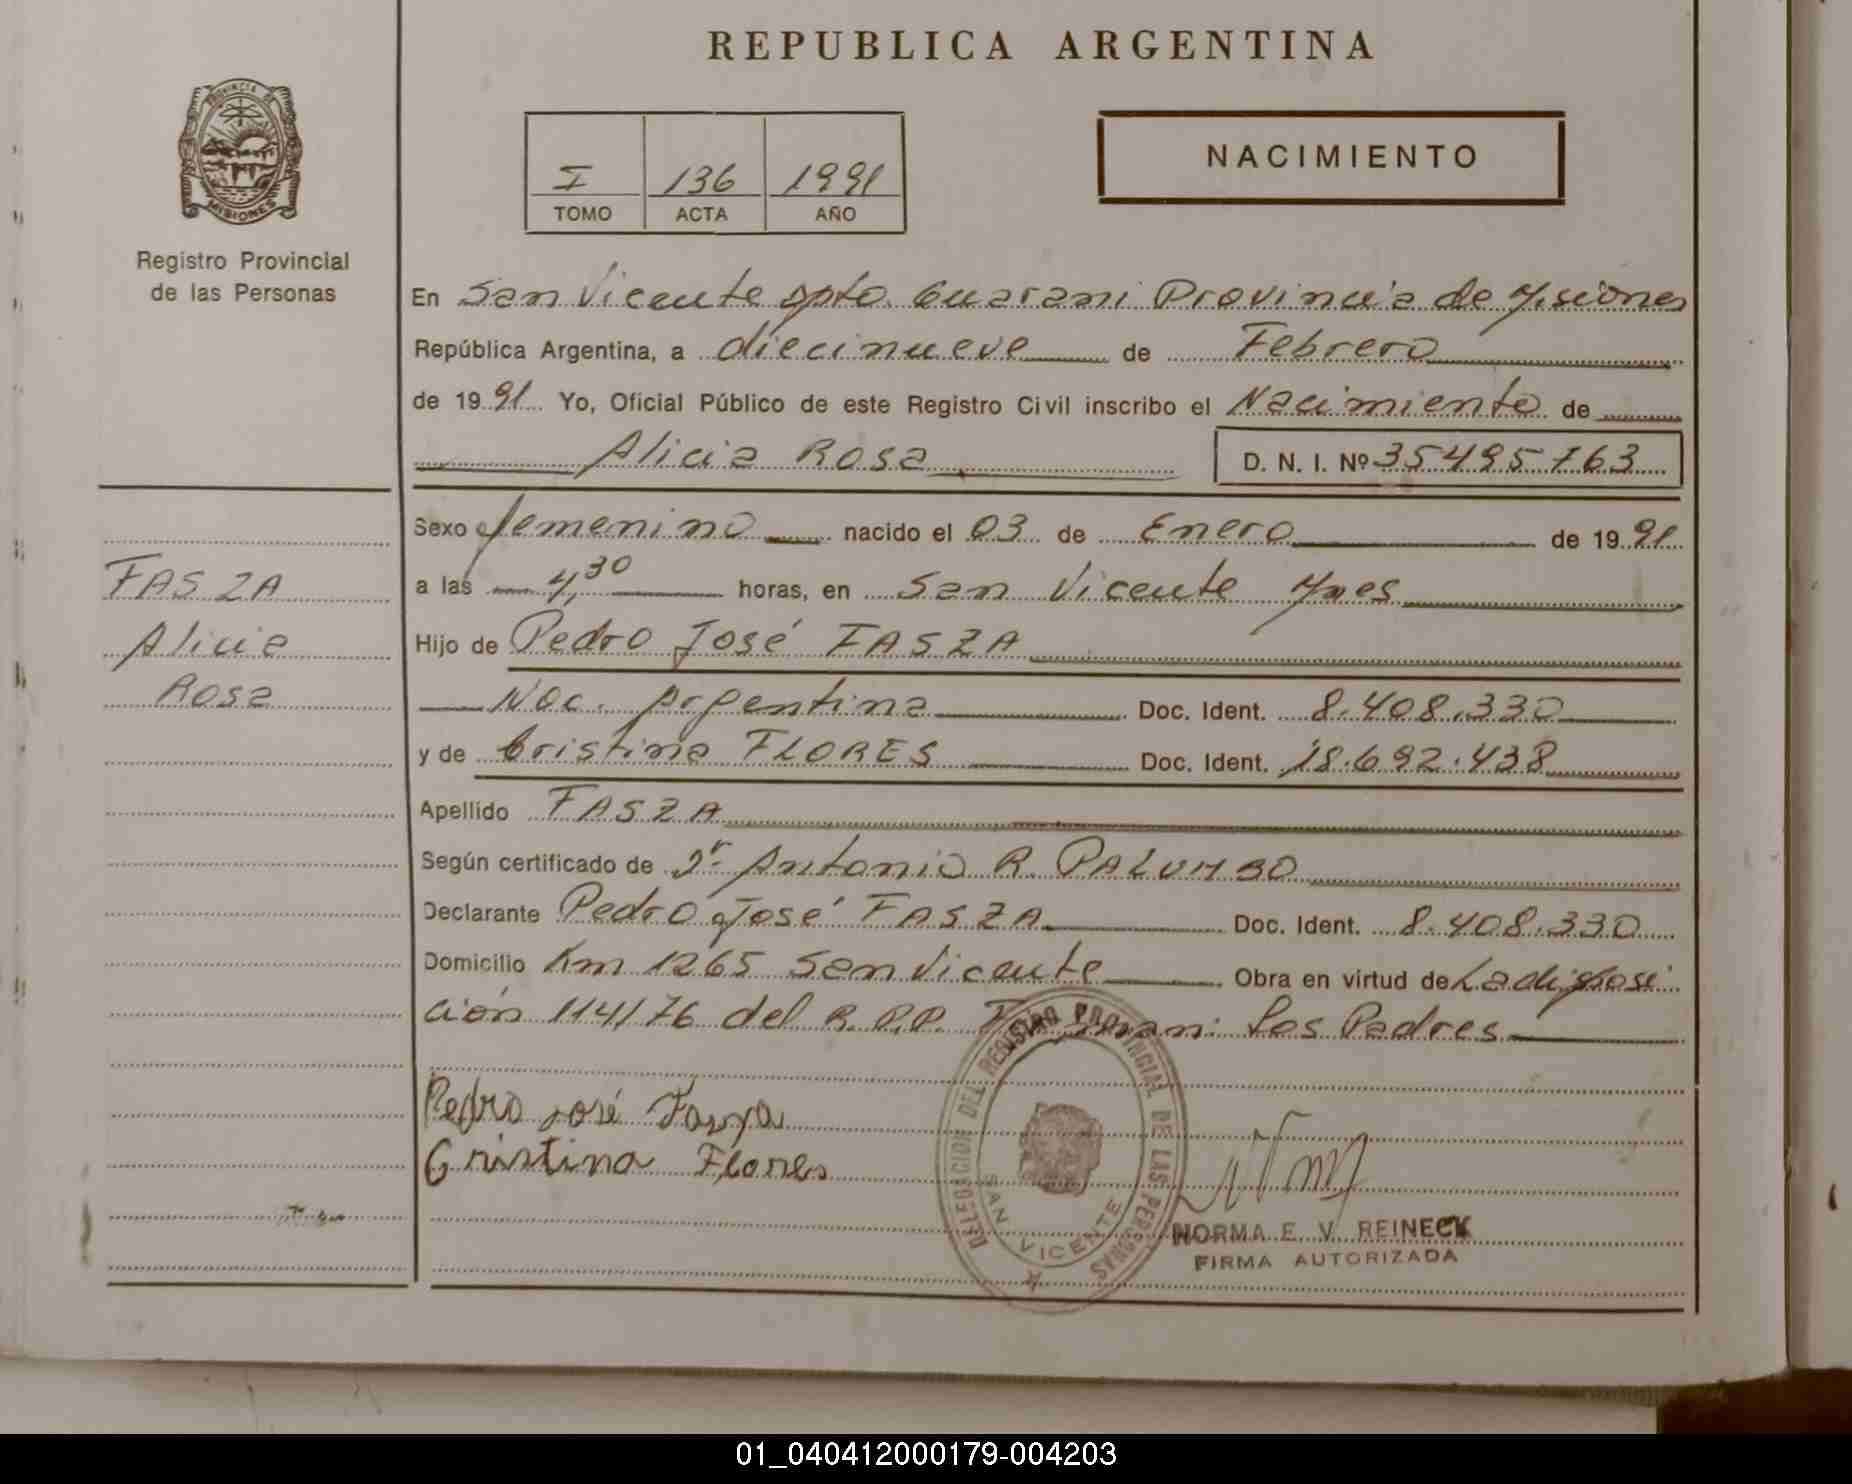 REPUBLICA ARGENTINA
PROVINCIA DE
MISIONES
Registro Provincial
de las Personas
I 136 1991
TOMO ACTA AÑO
NACIMIENTO
En San Vicente Dpto. Guarani Provincia de Misiones
República Argentina, a diecinueve de Febrero
de 1991 Yo, Oficial Público de este Registro Civil inscribo el Nacimiento de
Alicia Rosa D. N. I. Nº 35495763
Sexo femenino nacido el 03 de Enero de 1991
a las 4,30 horas, en San Vicente Mnes
Hijo de Pedro José FASZA
Nac. Argentina Doc. Ident. 8.408.330
y de Cristina FLORES Doc. Ident. 18.692.438
Apellido FASZA
Según certificado de Dr. Antonio R. PALUMBO
Declarante Pedro José FASZA Doc. Ident. 8.408.330
Domicilio Km 1265 San Vicente Obra en virtud de La disposi
ción 114/76 del R.P.P. Firman: Los Padres
FASZA
Alicia
Rosa
Pedro José Fasza
Cristina Flores
DELEGACION DEL REGISTRO PROVINCIAL DE LAS PERSONAS
SAN VICENTE
NORMA E. V. REINECK
FIRMA AUTORIZADA
01_040412000179-004203